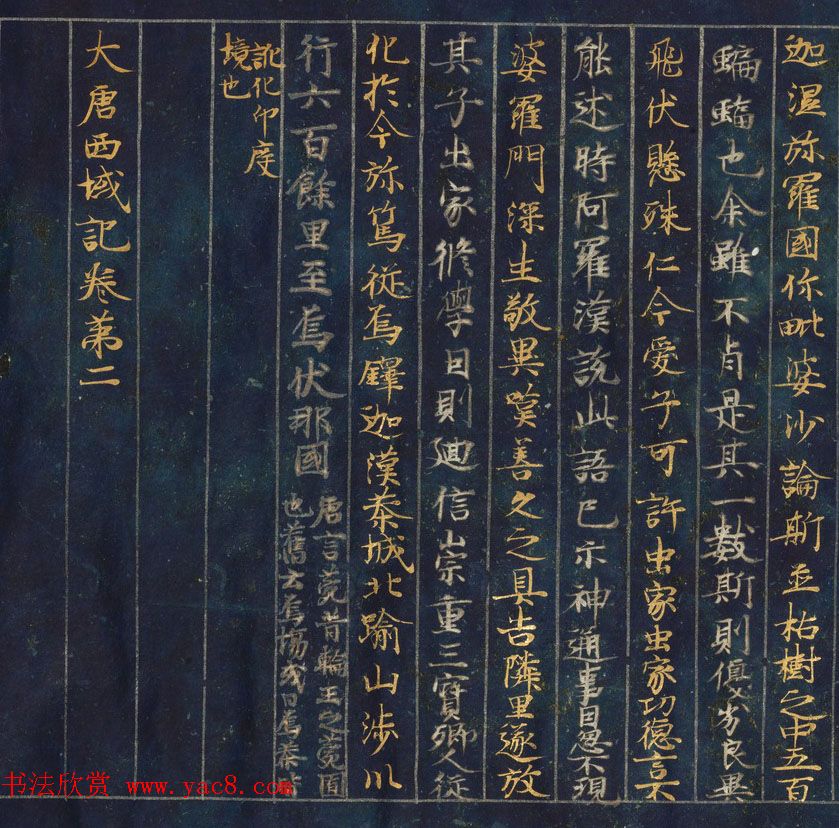 迦湿弥羅國作毗婆沙論斯並枯樹之中五百
蝙蝠也余雖不肖是其一數斯則優劣良異
飛伏懸殊仁今愛子可許出家出家功德言不
能述時阿羅漢說此語已示神通事因忽不現
婆羅門深生敬異嘆善久之具告隣里遂放
其子出家修學因則迴信崇重三寶鄉人從
化於今弥篤從烏鐸迦漢荼城北踰山涉川
行六百餘里至烏伏那國
唐言苑昔輪王之苑囿
也舊云烏場或曰烏荼皆
訛北印度
境也
大唐西域記卷第二
书法欣赏 www.yac8.com